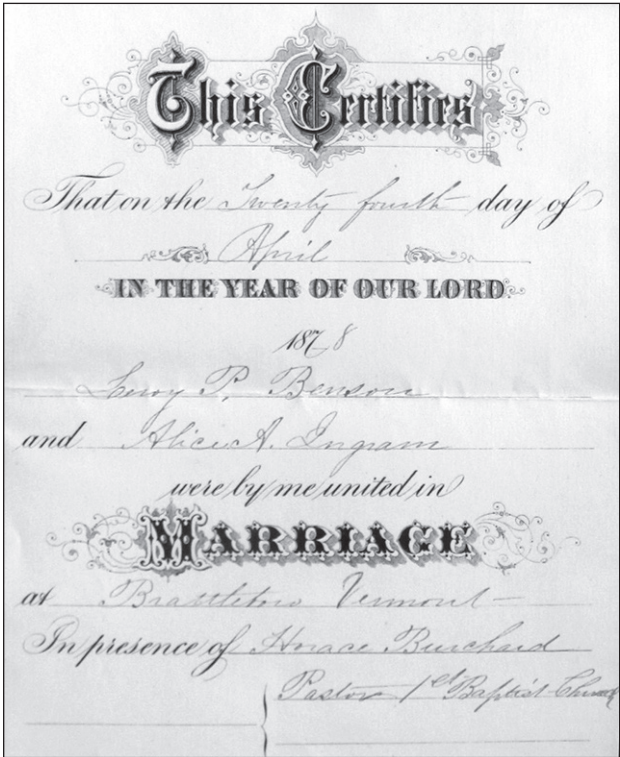 This Certifies
That on the Twenty fourth day of
April
IN THE YEAR OF OUR LORD
1878
Leroy P. Benson
and Alice A. Ingram
were by me united in
MARRIAGE
at Brattleboro Vermont
In presence of Horace Burchard
Pastor 1st Baptist Church